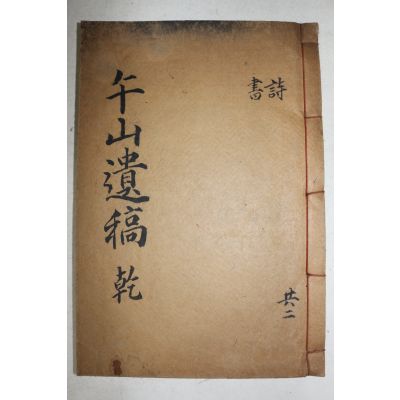 午山遺稿 乾
詩
書
共二